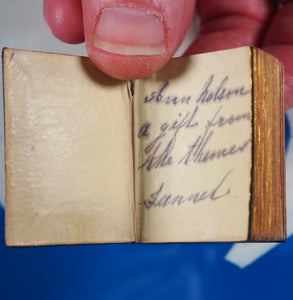 Ann nelson
a gift from
the themes
Tunnel